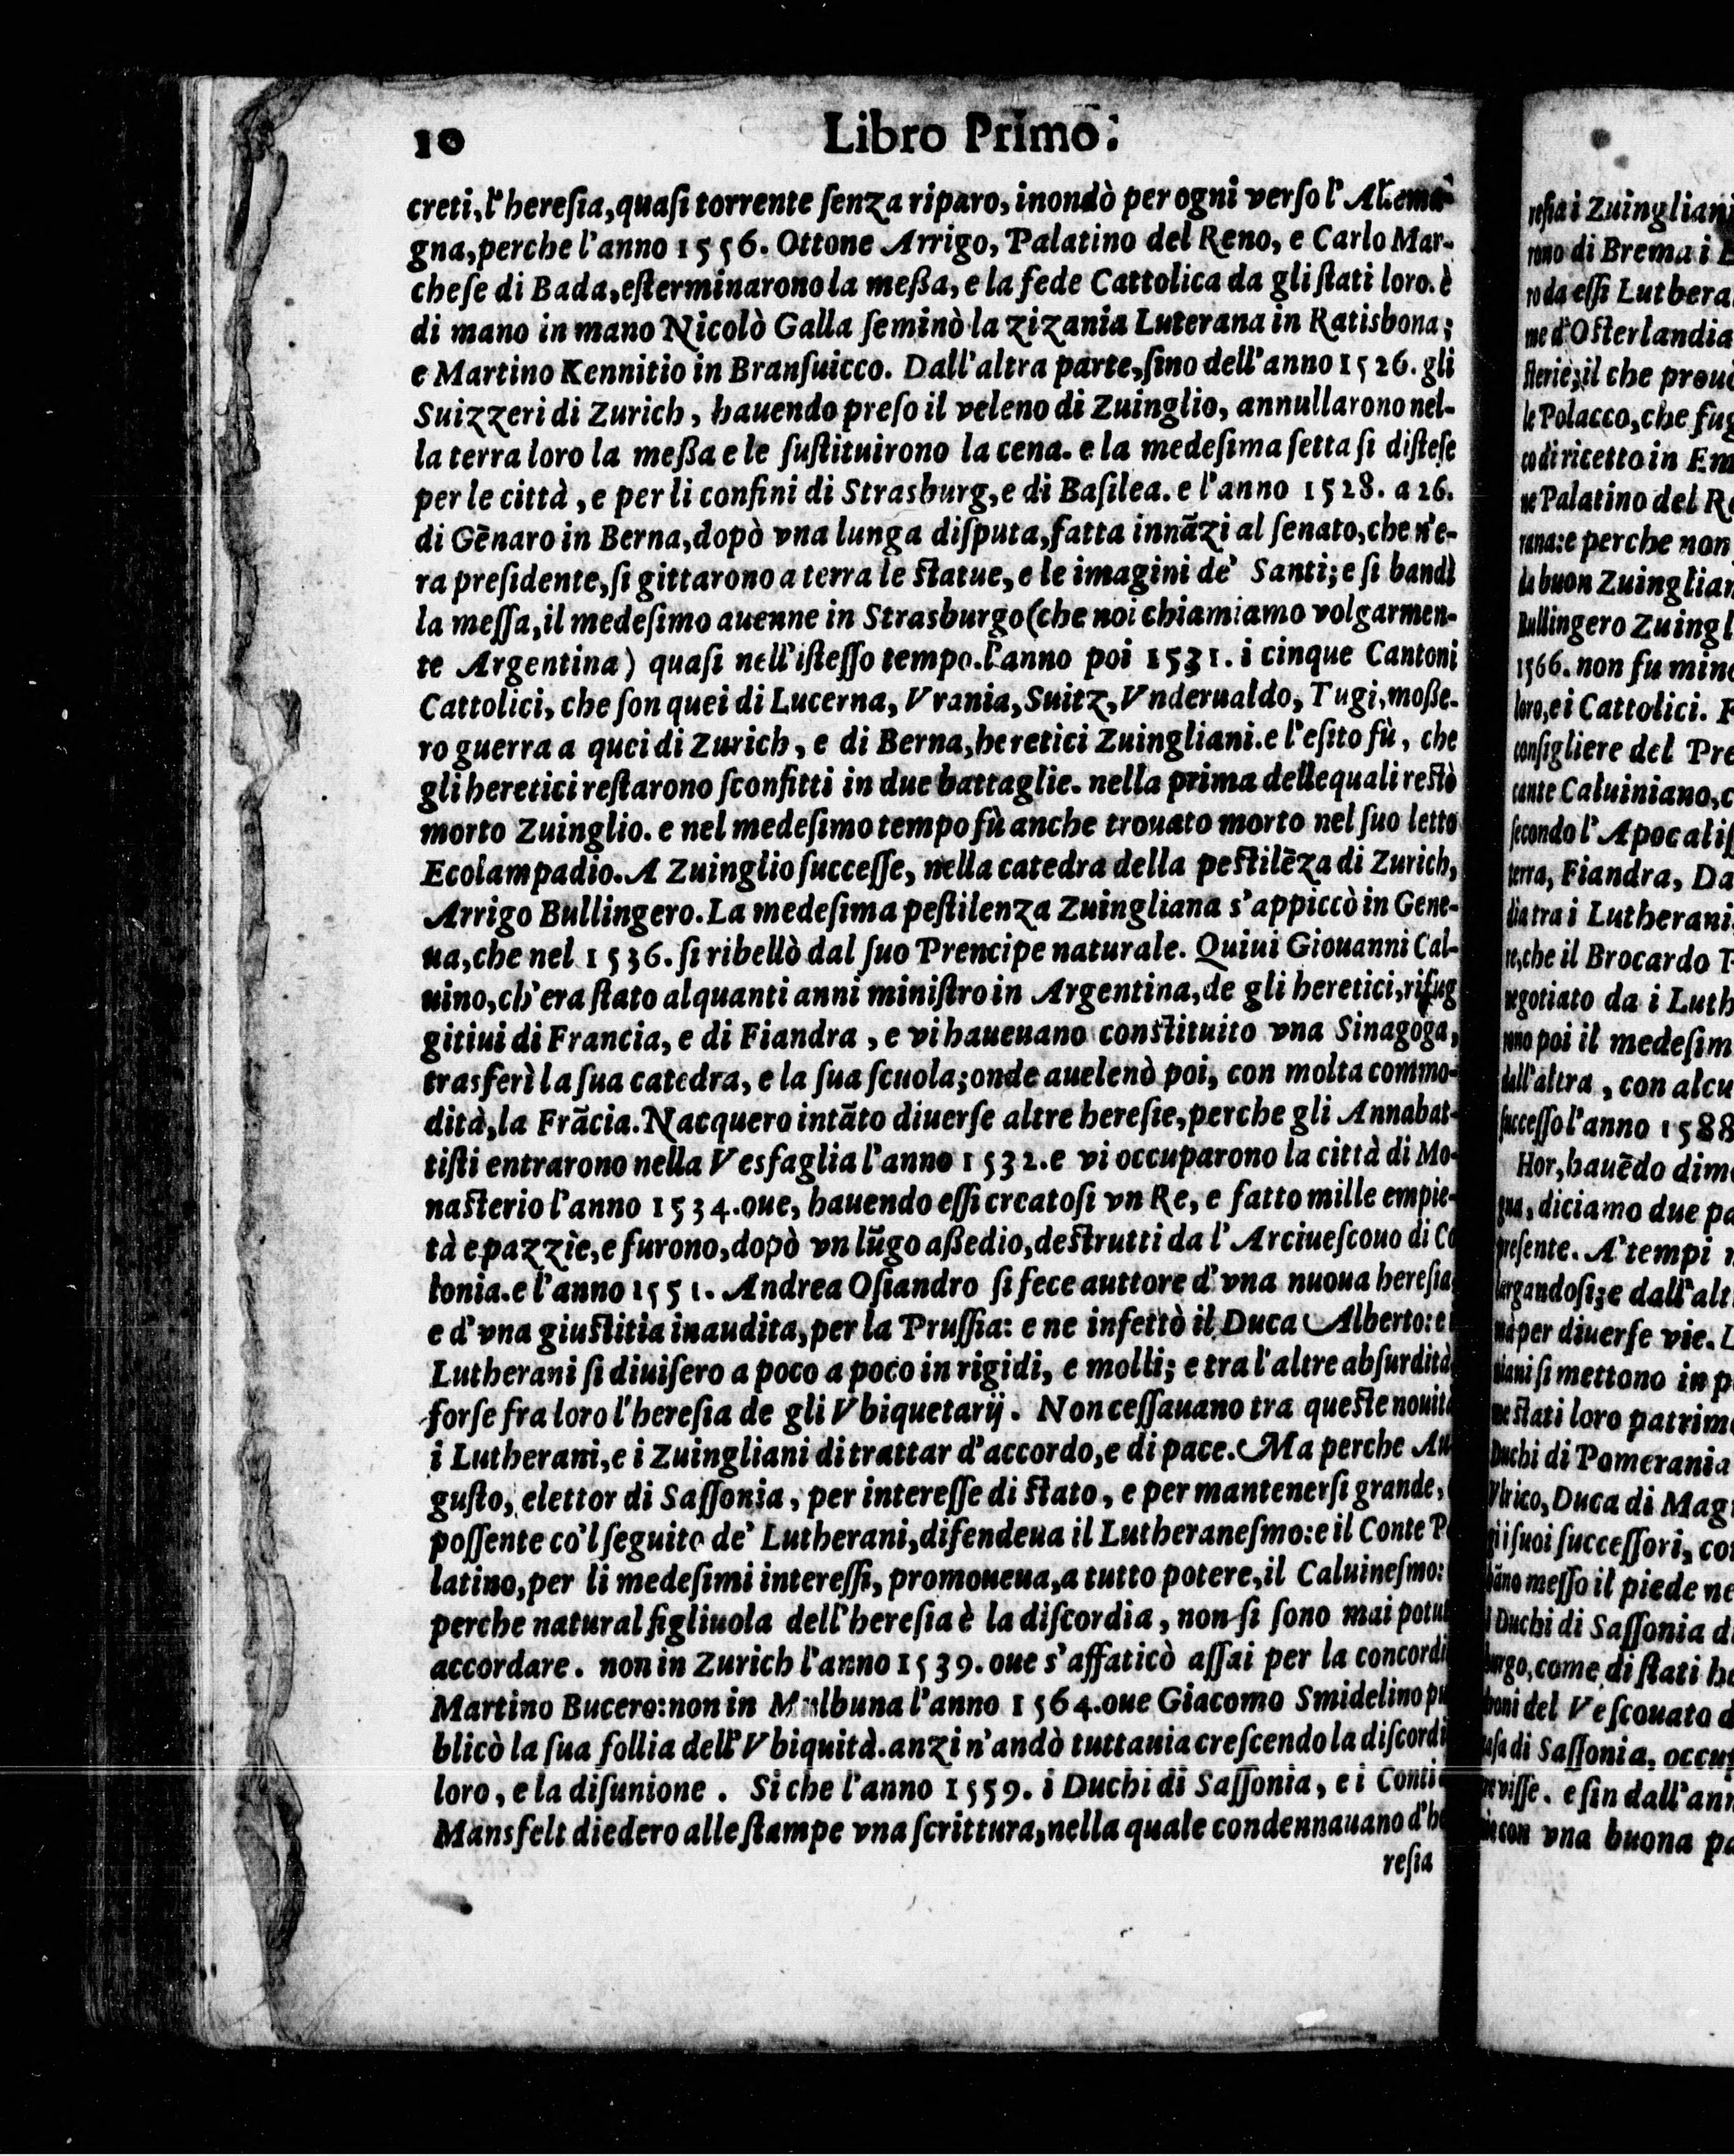 10
Libro Primo.
creti, l'heresia, quasi torrente senza riparo, inondò per ogni verso l'Alema-
gna, perche l'anno 1556. Ottone Arrigo, Palatino del Reno, e Carlo Mar-
chese di Bada, esterminarono la meßa, e la fede Cattolica da gli stati loro. è
di mano in mano Nicolò Galla seminò la zizania Luterana in Ratisbona;
e Martino Kennitio in Bransuicco. Dall'altra parte, sino dell'anno 1526. gli
Suizzeri di Zurich, hauendo preso il veleno di Zuinglio, annullarono nel-
la terra loro la meßa e le sustituirono la cena. e la medesima setta si distese
per le città, e per li confini di Strasburg, e di Basilea. e l'anno 1528. a 26.
di Gēnaro in Berna, dopò vna lunga disputa, fatta innāzi al senato, che n'e-
ra presidente, si gittarono a terra le statue, e le imagini de' Santi; e si bandì
la messa, il medesimo auenne in Strasburgo (che noi chiamiamo volgarmen-
te Argentina) quasi nell'istesso tempo. l'anno poi 1531. i cinque Cantoni
Cattolici, che son quei di Lucerna, Vrania, Suitz, Vnderualdo, Tugi, moße-
ro guerra a quei di Zurich, e di Berna, heretici Zuingliani. e l'esito fù, che
gli heretici restarono sconfitti in due battaglie. nella prima delle quali restò
morto Zuinglio. e nel medesimo tempo fù anche trouato morto nel suo letto
Ecolampadio. A Zuinglio successe, nella catedra della pestilēza di Zurich,
Arrigo Bullingero. La medesima pestilenza Zuingliana s'appiccò in Gene-
ua, che nel 1536. si ribellò dal suo Prencipe naturale. Quiui Giouanni Cal-
uino, ch'era stato alquanti anni ministro in Argentina, de gli heretici, rifug
gitiui di Francia, e di Fiandra, e vi haueuano constituito vna Sinagoga,
trasferì la sua catedra, e la sua scuola; onde auelenò poi, con molta commo-
dità, la Frācia. Nacquero intāto diuerse altre heresie, perche gli Annabat-
tisti entrarono nella Vesfaglia l'anno 1532. e vi occuparono la città di Mo-
nasterio l'anno 1534. oue, hauendo essi creatosi vn Re, e fatto mille empie-
tà e pazzie, e furono, dopò vn lūgo aßedio, destrutti da l'Arciuescouo di Co
lonia. e l'anno 1551. Andrea Osiandro si fece auttore d'vna nuoua heresia
e d'vna giustitia inaudita, per la Prussia: e ne infettò il Duca Alberto: e i
Lutherani si diuisero a poco a poco in rigidi, e molli; e tra l'altre absurdità
forse fra loro l'heresia de gli Vbiquetarij. Non cessauano tra queste nouità
i Lutherani, e i Zuingliani di trattar d'accordo, e di pace. Ma perche Au
gusto, elettor di Sassonia, per interesse di stato, e per mantenersi grande,
possente co'l seguito de' Lutherani, difendeua il Lutheranesmo: e il Conte P
latino, per li medesimi interessi, promoueua, a tutto potere, il Caluinesmo:
perche natural figliuola dell'heresia è la discordia, non si sono mai potu
accordare. non in Zurich l'anno 1539. oue s'affaticò assai per la concordi
Martino Bucero: non in Mulbuna l'anno 1564. oue Giacomo Smidelino pu
blicò la sua follia dell'Vbiquità. anzi n'andò tuttauia crescendo la discordi
loro, e la disunione. Si che l'anno 1559. i Duchi di Sassonia, e i Conti
Mansfelt diedero alle stampe vna scrittura, nella quale condennauano d'he
resia
resia i Zuingliani
rono di Brema i
ro da essi Luthera
me d'Osterlandia
sterie; il che
le Polacco, che fug
co di ricetto in Em
ne Palatino del R
rana: e perche non
da buon Zuinglian
Bullingero Zuingl
1566. non fu min
loro, e i Cattolici.
consigliere del Pre
cante Caluiniano, c
secondo l'Apocalis
terra, Fiandra, Da
dia tra i Lutherani,
re, che il Brocardo
negotiato da i Luth
rono poi il medesim
dall'altra, con alcu
successo l'anno 1588
Hor, hauēdo dim
gna, diciamo due pa
presente. A' tempi
largandosi; e dall'alt
per diuerse vie.
niani si mettono in p
ne stati loro patrim
Duchi di Pomerania
Vlrico, Duca di Mag
i suoi successori, co
hāno messo il piede ne
i Duchi di Sassonia d
burgo, come di stati h
boni del Vescouato d
casa di Sassonia, occup
visse. e sin dall'ann
con vna buona pa